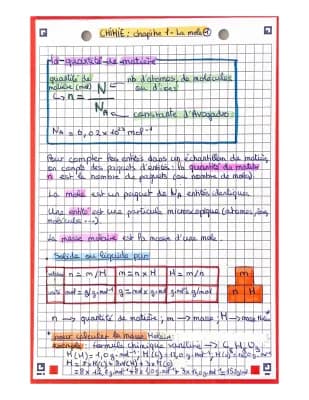 CHIMIE : chapitre 1 - La mole
La quantité de matière
quantité de matière (mol)
nb d'atomes, de molécules ou d'ions
n = N
NA
constante d'Avogadro
NA = 6,02 x 10²³ mol⁻¹
Pour compter les entités dans un échantillon de matière,
on compte des paquets d'entités : la quantité de matière
n est le nombre de paquets (ou nombre de moles)
La mole est un paquet de NA entités identiques
Une entité est une particule microscopique (atomes, ions,
molécules ...).
La masse molaire est la masse d'une mole.
• Solide ou liquide pur
n = m/M m = n x M M = m/n m
mol = g/g.mol⁻¹ g = mol x g.mol⁻¹ g.mol⁻¹ = g/mol n M
n → quantité de matière ; m → masse ; M → masse molaire
• pour calculer la masse molaire
exemple : formule chimique vanilline → C₈H₈O₃
M(H) = 1,0 g.mol⁻¹ ; M(C) = 12,0 g.mol⁻¹ ; M(O) = 16,0 g.mol⁻¹